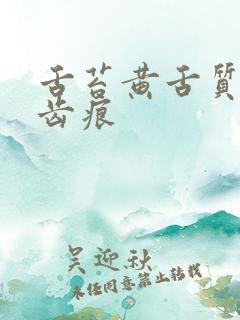 舌苔黄舌質
齿痕
吴迎秋
未经同意禁止转载